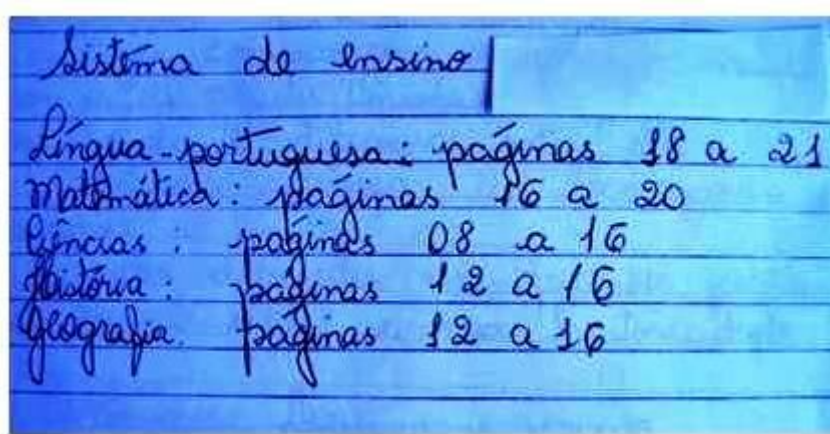 Sistema de ensino
Língua-portuguesa: páginas 18 a 21
Matemática: páginas 16 a 20
Ciências: páginas 08 a 16
História: páginas 12 a 16
Geografia. páginas 12 a 16